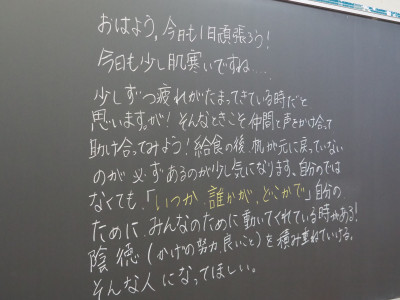 おはよう。今日も1日頑張ろう!
今日も少し肌寒いですね…
少しずつ疲れがたまってきている時だと
思いますが!そんなときこそ仲間と声をかけ合って
助け合ってみよう!給食の後、机が元に戻っていない
のが必ずあるのが少し気になります。自分のでは
なくても、「いつか、誰かが、どこかで」自分の
ために、みんなのために動いてくれている時がある!
陰徳(かげの努力、良いこと)を積み重ねていける。
そんな人になってほしい。